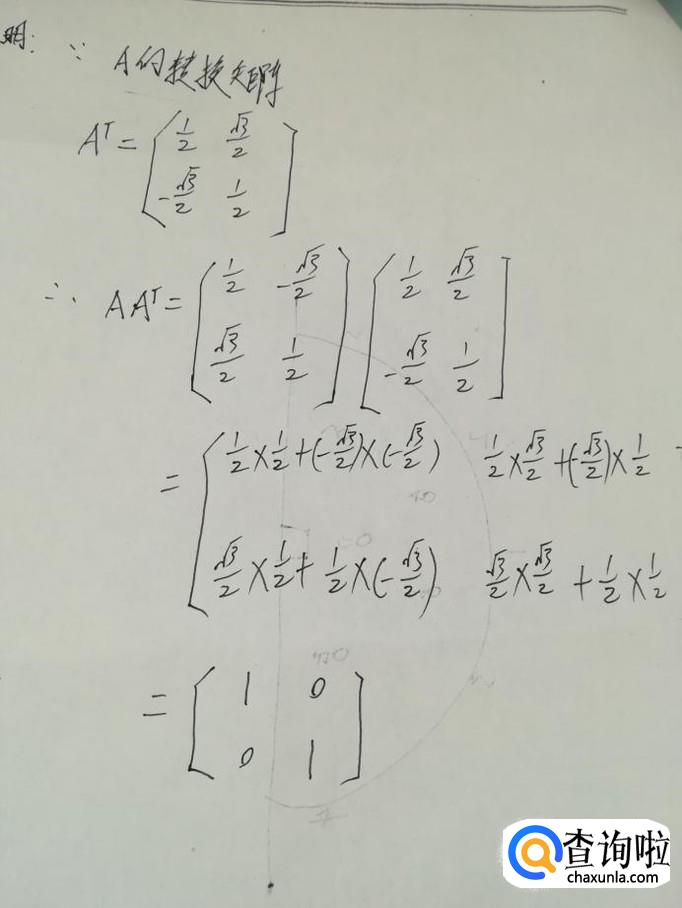 明: ∵ A的转换矩阵
Aᵀ = [1/2 √3/2
-√3/2 1/2]
∴ AAᵀ = (1/2 -√3/2 [1/2 √3/2
√3/2 1/2) -√3/2 1/2]
= [1/2×1/2+(-√3/2)×(-√3/2) 1/2×√3/2+(-√3/2)×1/2
√3/2×1/2+1/2×(-√3/2) √3/2×√3/2+1/2×1/2
= [1 0
0 1]
查询啦
chaxunla.com